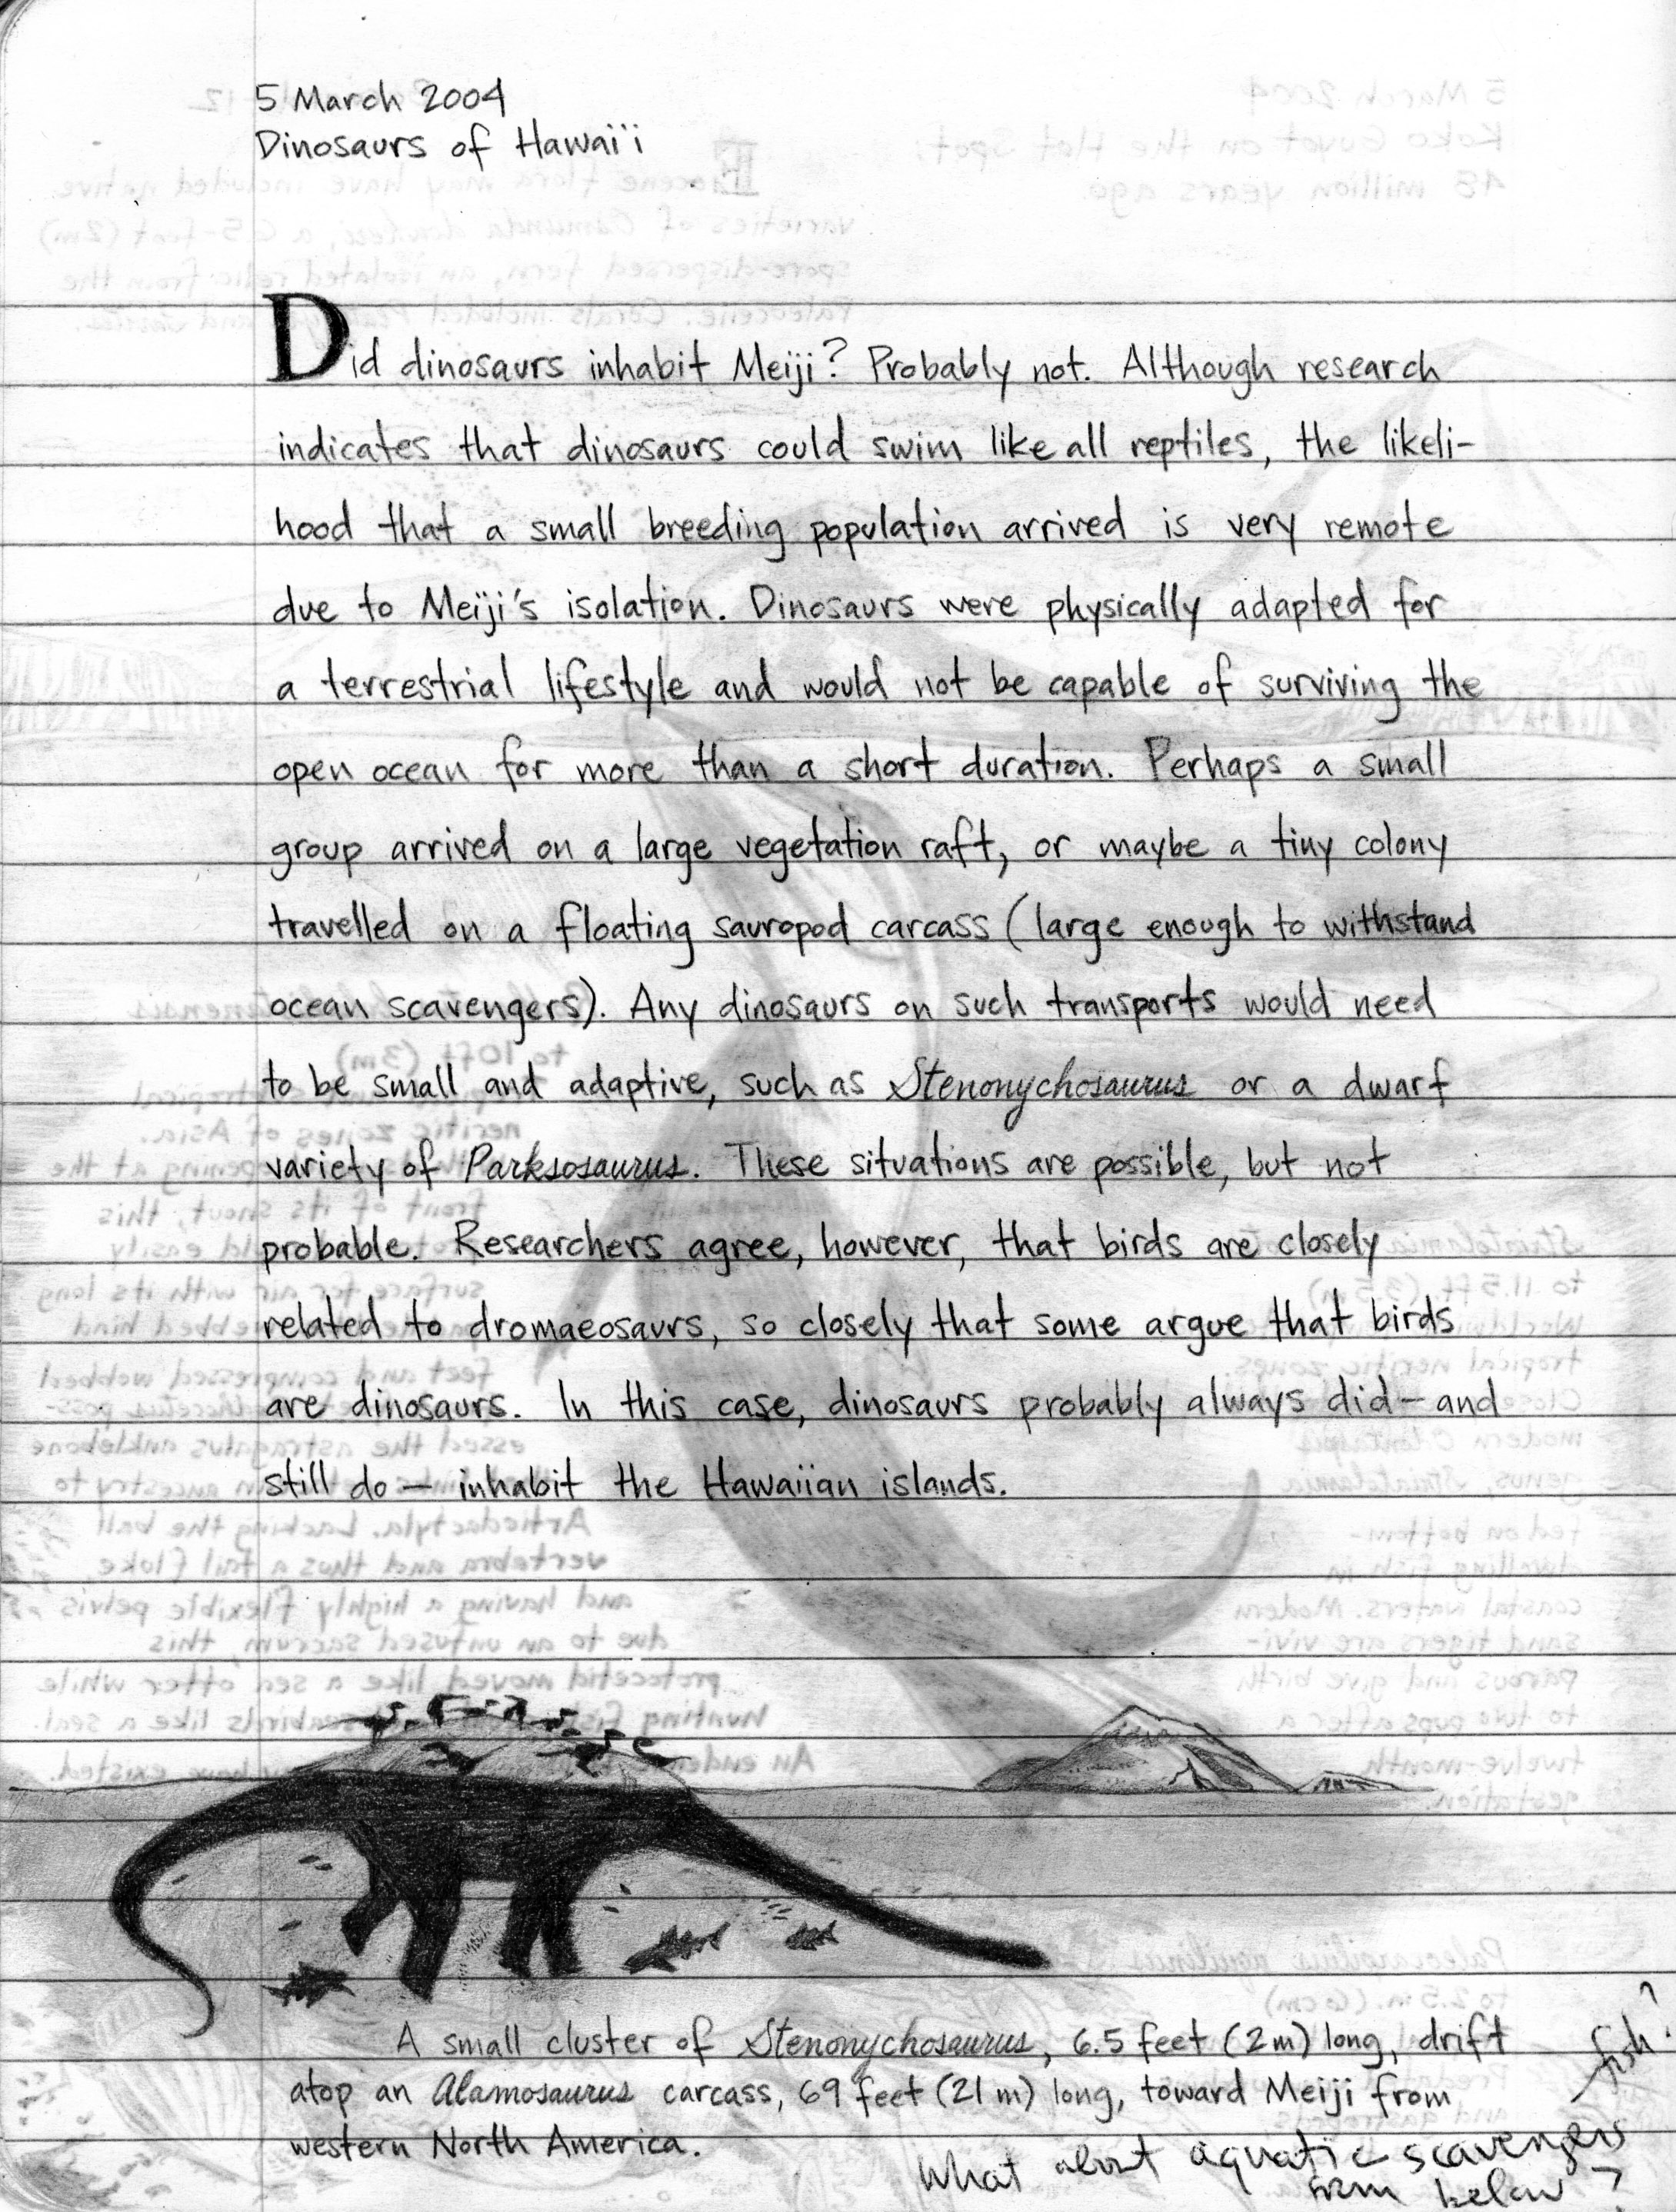 5 March 2004
Dinosaurs of Hawai'i
Did dinosaurs inhabit Meiji? Probably not. Although research
indicates that dinosaurs could swim like all reptiles, the likeli-
hood that a small breeding population arrived is very remote
due to Meiji's isolation. Dinosaurs were physically adapted for
a terrestrial lifestyle and would not be capable of surviving the
open ocean for more than a short duration. Perhaps a small
group arrived on a large vegetation raft, or maybe a tiny colony
travelled on a floating sauropod carcass (large enough to withstand
ocean scavengers). Any dinosaurs on such transports would need
to be small and adaptive, such as Stenonychosaurus or a dwarf
variety of Parksosaurus. These situations are possible, but not
probable. Researchers agree, however, that birds are closely
related to dromaeosaurs, so closely that some argue that birds
are dinosaurs. In this case, dinosaurs probably always did — and
still do — inhabit the Hawaiian islands.
A small cluster of Stenonychosaurus, 6.5 feet (2m) long, drift
atop an Alamosaurus carcass, 69 feet (21m) long, toward Meiji from
western North America.
What about aquatic scavengers
from below?
fish?